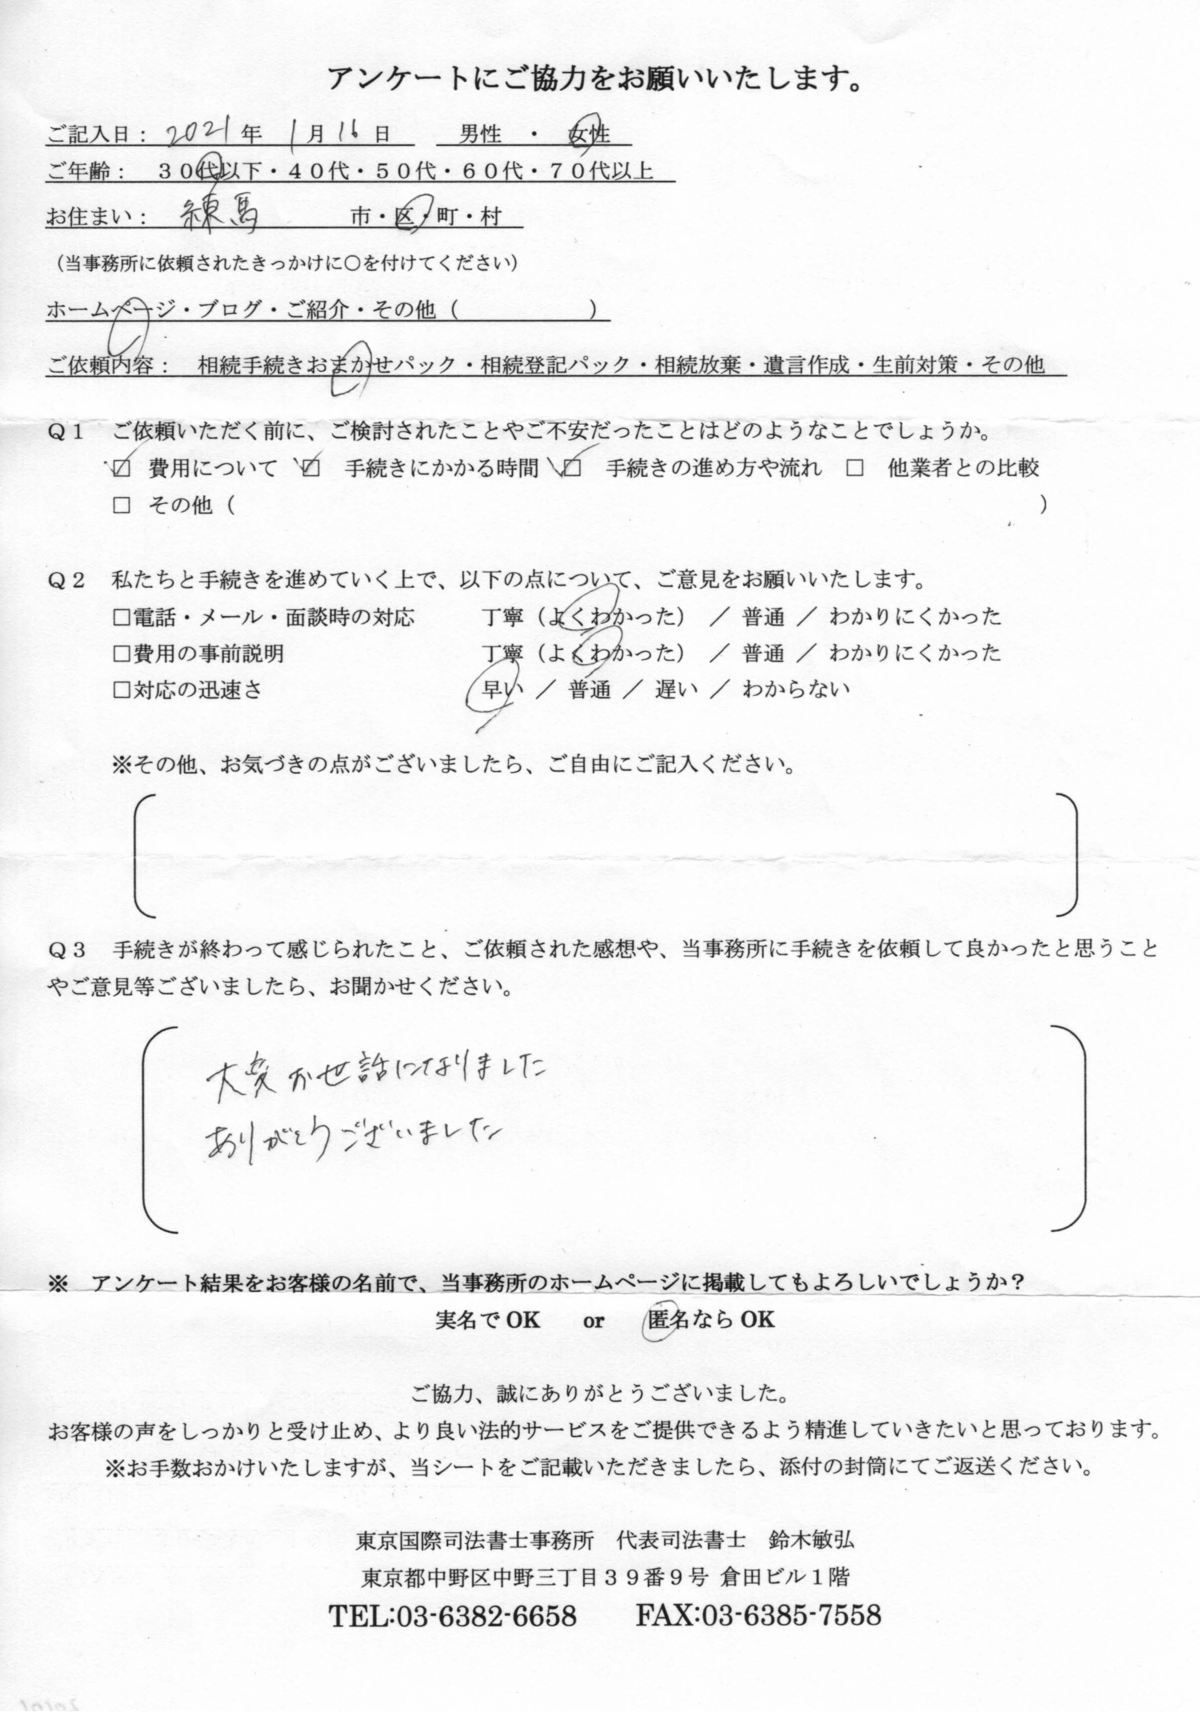 アンケートにご協力をお願いいたします。
ご記入日： 2021 年 1 月 16 日 男性 ・ 女性
ご年齢： ３０代以下・４０代・５０代・６０代・７０代以上
お住まい： 練馬 市・区・町・村
（当事務所に依頼されたきっかけに○を付けてください）
ホームページ・ブログ・ご紹介・その他（ ）
ご依頼内容： 相続手続きおまかせパック・相続登記パック・相続放棄・遺言作成・生前対策・その他
Ｑ１ ご依頼いただく前に、ご検討されたことやご不安だったことはどのようなことでしょうか。
☑ 費用について ☑ 手続きにかかる時間 ☑ 手続きの進め方や流れ □ 他業者との比較
□ その他（ ）
Ｑ２ 私たちと手続きを進めていく上で、以下の点について、ご意見をお願いいたします。
□電話・メール・面談時の対応 丁寧（よくわかった） ／ 普通 ／ わかりにくかった
□費用の事前説明 丁寧（よくわかった） ／ 普通 ／ わかりにくかった
□対応の迅速さ 早い ／ 普通 ／ 遅い ／ わからない
※その他、お気づきの点がございましたら、ご自由にご記入ください。
Ｑ３ 手続きが終わって感じられたこと、ご依頼された感想や、当事務所に手続きを依頼して良かったと思うこと
やご意見等ございましたら、お聞かせください。
大変お世話になりました
ありがとうございました
※ アンケート結果をお客様の名前で、当事務所のホームページに掲載してもよろしいでしょうか？
実名でOK or 匿名ならOK
ご協力、誠にありがとうございました。
お客様の声をしっかりと受け止め、より良い法的サービスをご提供できるよう精進していきたいと思っております。
※お手数おかけいたしますが、当シートをご記載いただきましたら、添付の封筒にてご返送ください。
東京国際司法書士事務所 代表司法書士 鈴木敏弘
東京都中野区中野三丁目３９番９号 倉田ビル１階
TEL:03-6382-6658 FAX:03-6385-7558